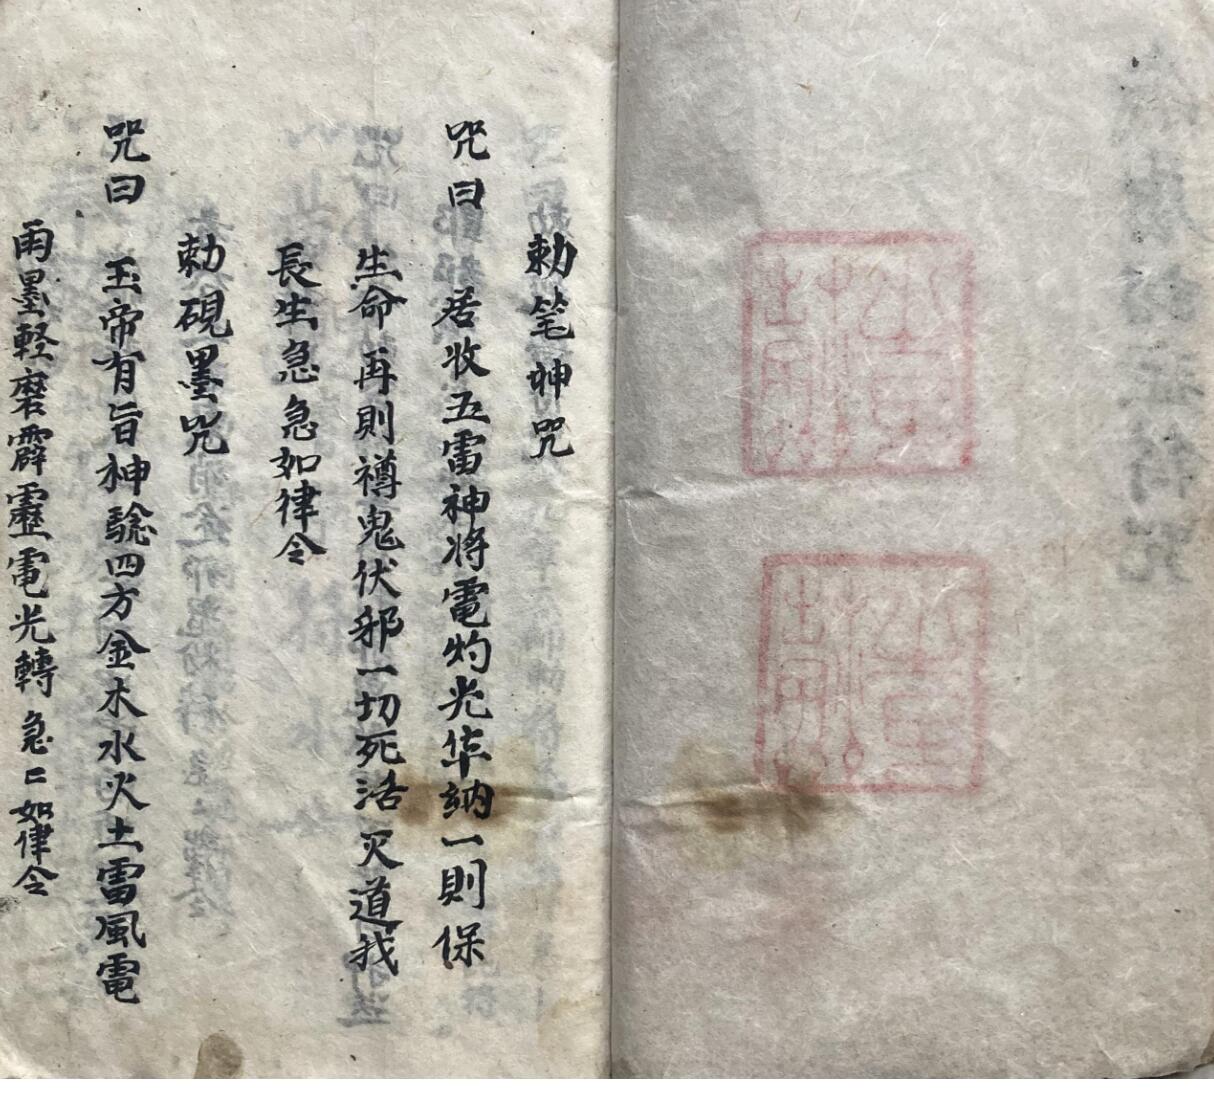 勅笔神咒
咒曰 居收五雷神将電灼光华納一則保
生命再則禣鬼伏邪一切死活灭道我
長生急急如律令
勅硯墨咒
咒曰 玉帝有旨神驗四方金木水火土雷風電
雨墨軽磨霹靂電光轉急〻如律令